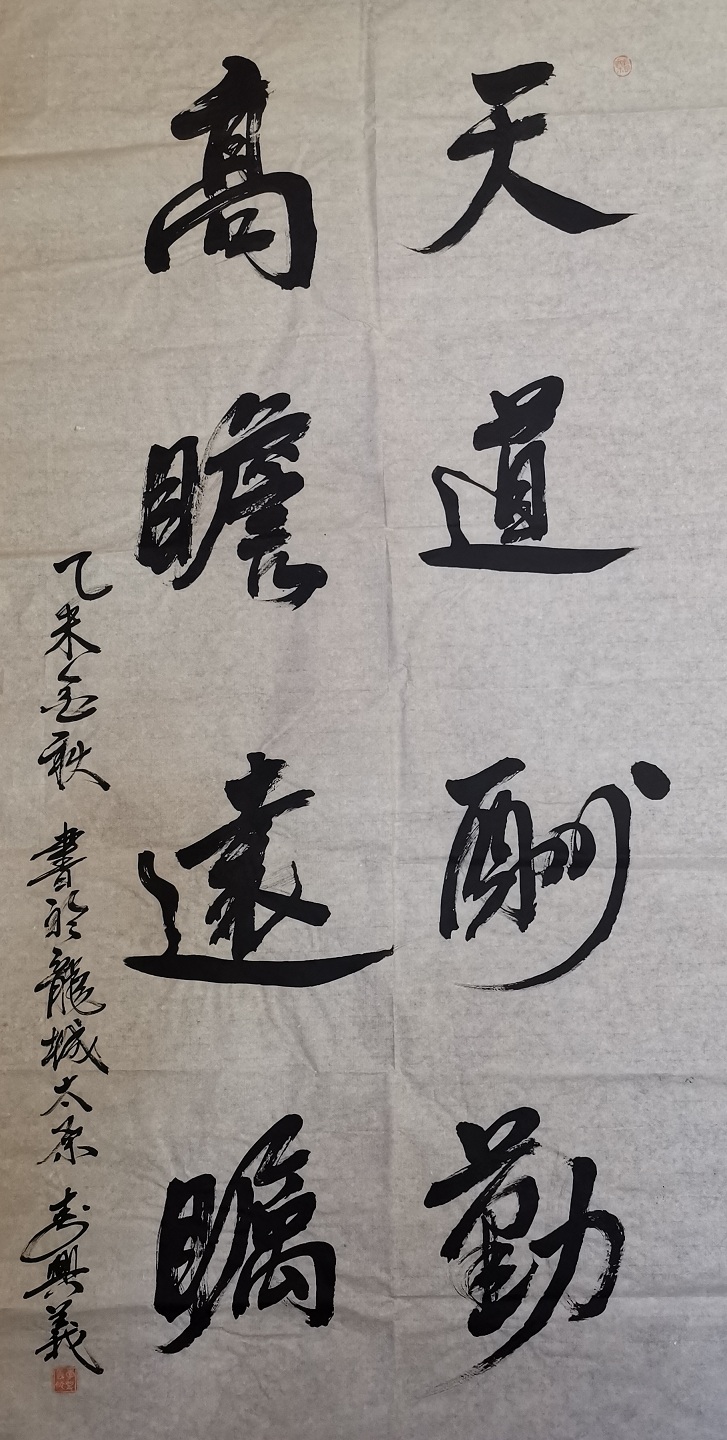 天道酬勤
高瞻遠矚
乙未金秋 書於龍城太原 興義